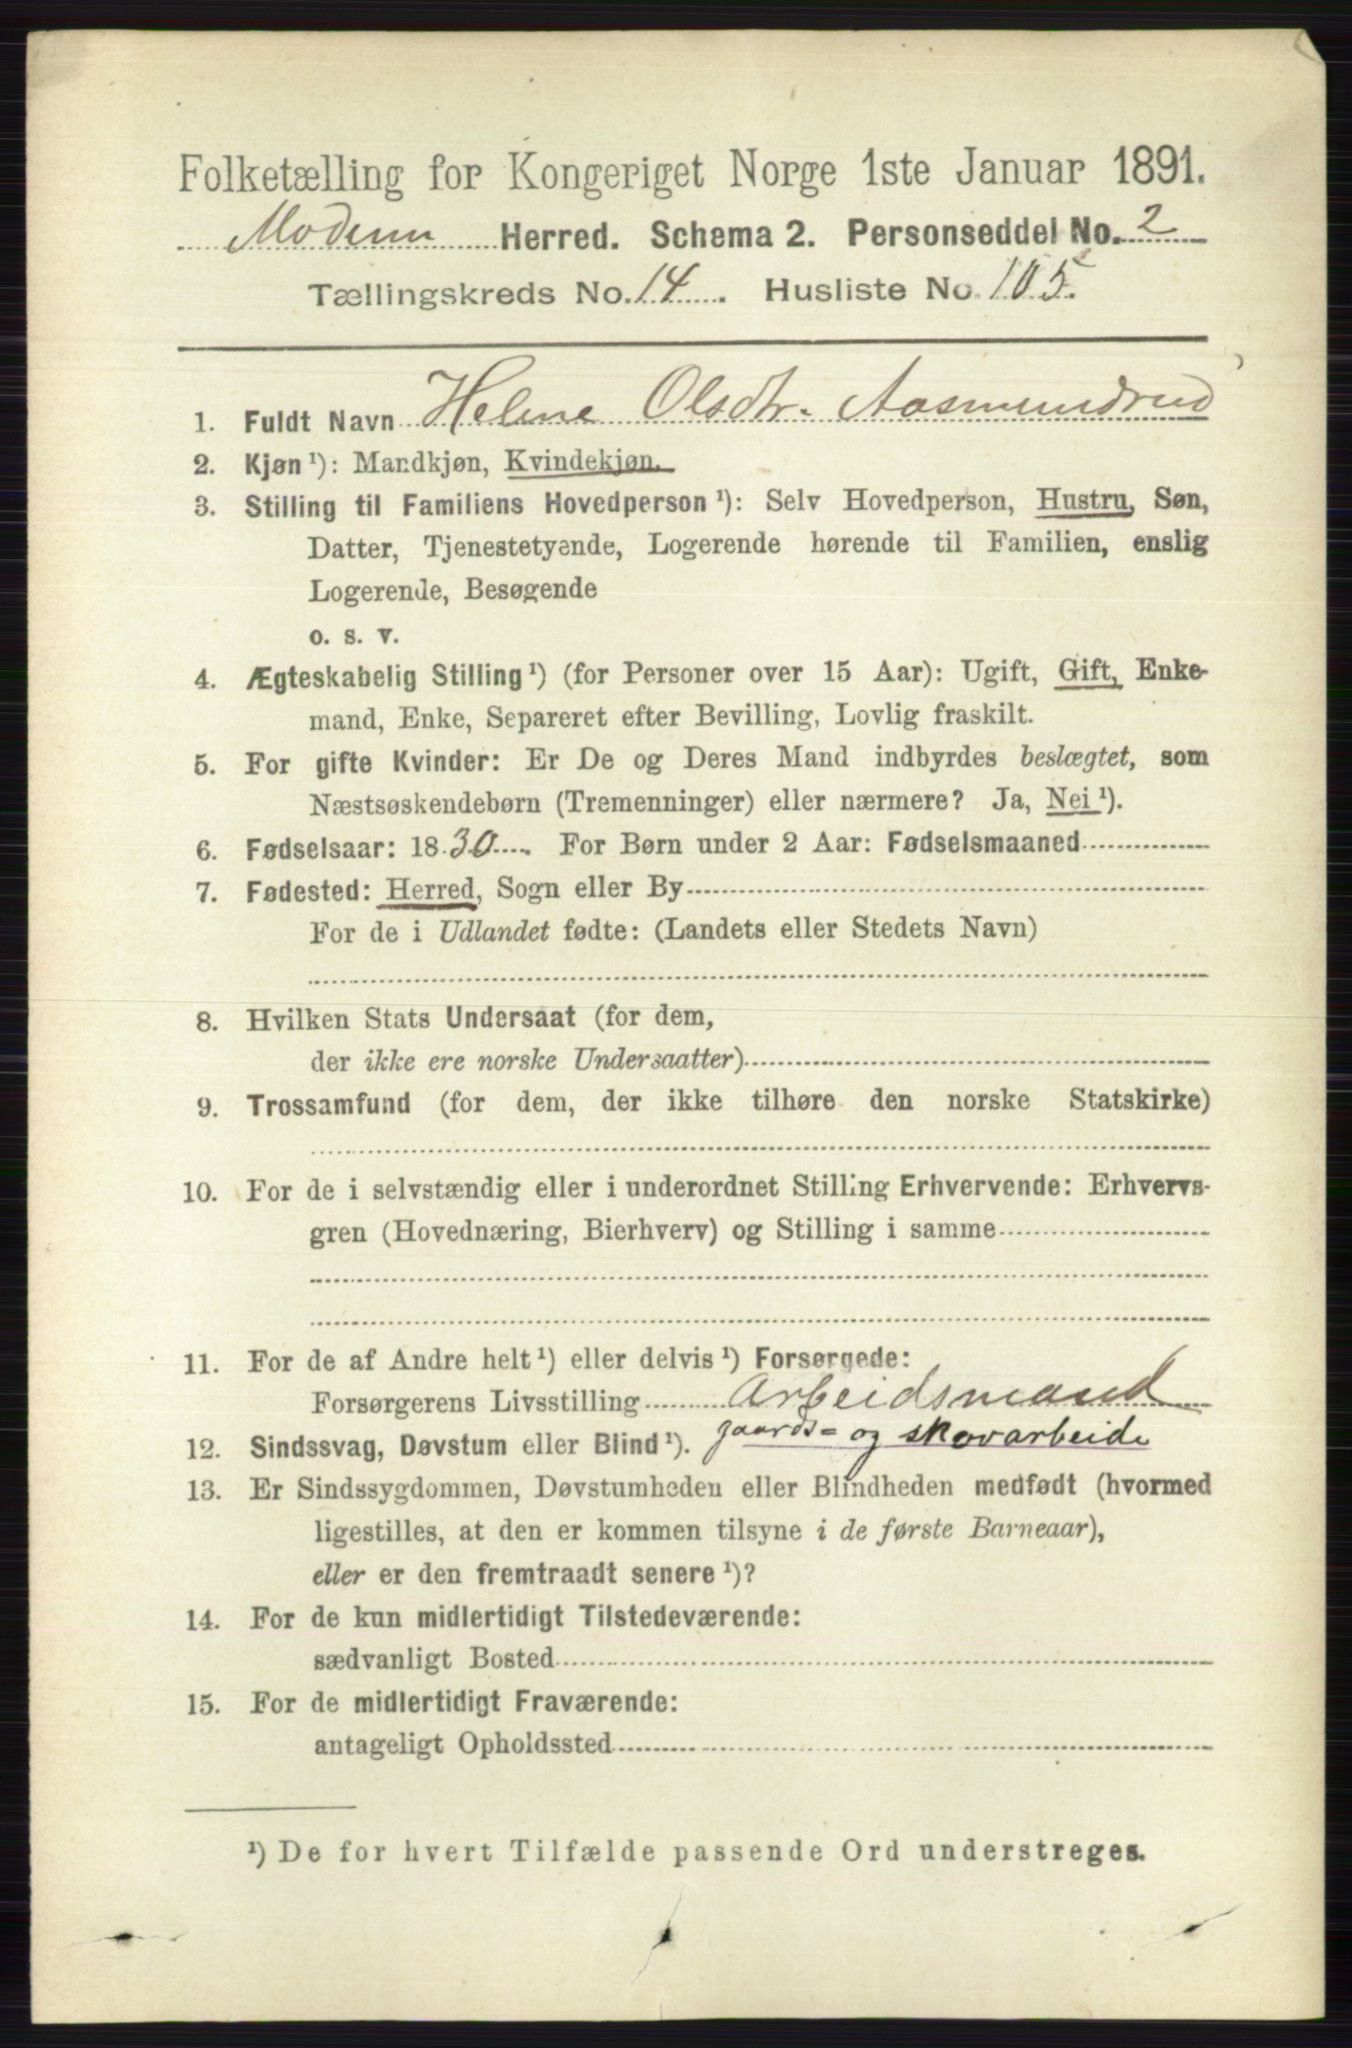 Folketælling for Kongeriget Norge 1ste Januar 1891.
Modum Herred. Schema 2. Personseddel No. 2
Tællingskreds No. 14. Husliste No. 105.
1. Fuldt Navn Helene Olsdtr. Aasmundrud
2. Kjøn ¹): Mandkjøn, Kvindekjøn.
3. Stilling til Familiens Hovedperson ¹): Selv Hovedperson, Hustru, Søn,
Datter, Tjenestetyende, Logerende hørende til Familien, enslig
Logerende, Besøgende
o. s. v.
4. Ægteskabelig Stilling ¹) (for Personer over 15 Aar): Ugift, Gift, Enke-
mand, Enke, Separeret efter Bevilling, Lovlig fraskilt.
5. For gifte Kvinder: Er De og Deres Mand indbyrdes beslægtet, som
Næstsøskendebørn (Tremenninger) eller nærmere? Ja, Nei ¹).
6. Fødselsaar: 1830. For Børn under 2 Aar: Fødselsmaaned
7. Fødested: Herred, Sogn eller By
For de i Udlandet fødte: (Landets eller Stedets Navn)
8. Hvilken Stats Undersaat (for dem,
der ikke ere norske Undersaatter)
9. Trossamfund (for dem, der ikke tilhøre den norske Statskirke)
10. For de i selvstændig eller i underordnet Stilling Erhvervende: Erhvervs-
gren (Hovednæring, Bierhverv) og Stilling i samme
11. For de af Andre helt ¹) eller delvis ¹) Forsørgede:
Forsørgerens Livsstilling Arbeidsmand
gaards- og skovarbeide
12. Sindssvag, Døvstum eller Blind ¹).
13. Er Sindssygdommen, Døvstumheden eller Blindheden medfødt (hvormed
ligestilles, at den er kommen tilsyne i de første Barneaar),
eller er den fremtraadt senere ¹)?
14. For de kun midlertidigt Tilstedeværende:
sædvanligt Bosted
15. For de midlertidigt Fraværende:
antageligt Opholdssted
¹) De for hvert Tilfælde passende Ord understreges.